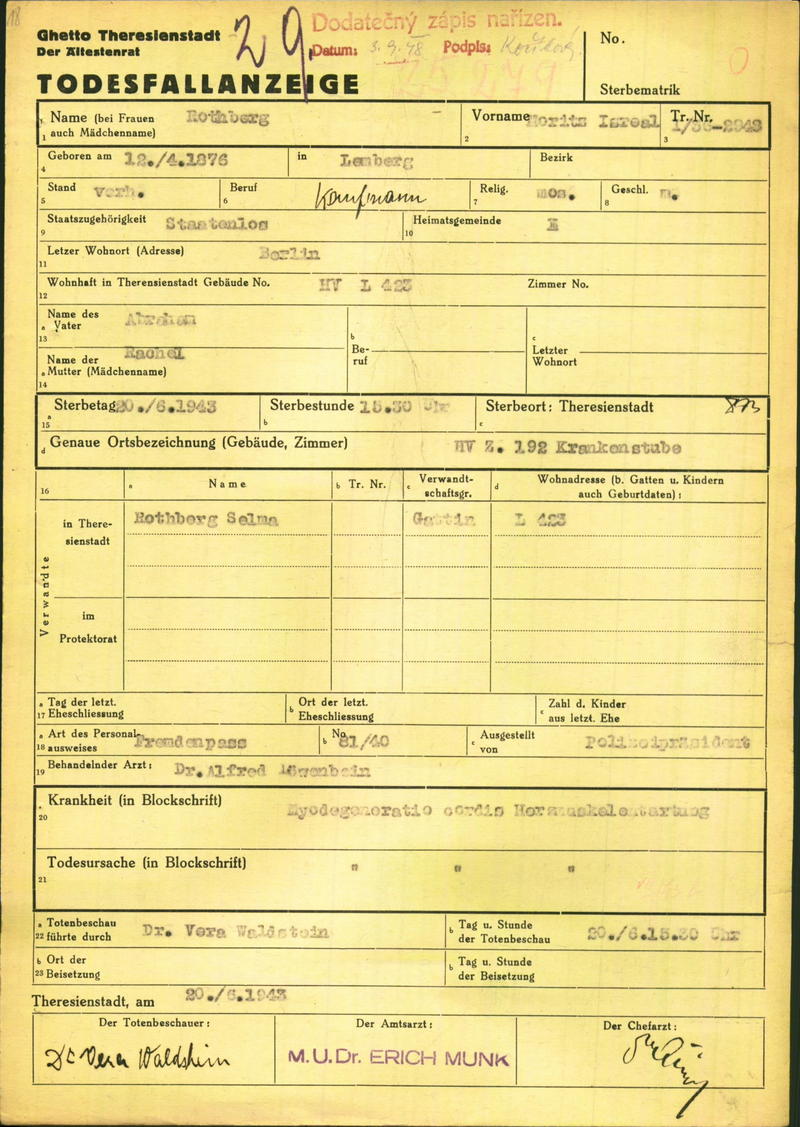 18
Ghetto Theresienstadt
Der Ältestenrat
29
Dodatečný zápis nařízen.
Datum: 3. 9. 48 Podpis:
25 279
No.
Sterbematrik
TODESFALLANZEIGE
1 Name (bei Frauen auch Mädchenname) Rothberg
2 Vorname Moritz Isreal
3 Tr. Nr.
4 Geboren am 12./4.1876 in Lemberg Bezirk
5 Stand verh. 6 Beruf Kaufmann 7 Relig. mos. 8 Geschl. m.
9 Staatszugehörigkeit Staatenlos 10 Heimatsgemeinde
11 Letzer Wohnort (Adresse) Berlin
12 Wohnhaft in Theresienstadt Gebäude No. HV L 423 Zimmer No.
13 a Name des Vater Abraham
14 a Name der Mutter (Mädchenname) Rachel
b Beruf
c Letzter Wohnort
15 a Sterbetag 20./6.1943 b Sterbestunde 15.30 Uhr c Sterbeort: Theresienstadt
d Genaue Ortsbezeichnung (Gebäude, Zimmer) HV Z. 192 Krankenstube
16 a Name b Tr. Nr. c Verwandtschaftsgr. d Wohnadresse (b. Gatten u. Kindern auch Geburtdaten):
Verwandte
in Theresienstadt Rothberg Selma Gattin L 423
im Protektorat
17 a Tag der letzt. Eheschliessung b Ort der letzt. Eheschliessung c Zahl d. Kinder aus letzt. Ehe
18 a Art des Personalausweises Fremdenpass b No. 81/40 c Ausgestellt von Polizeipräsident
19 Behandelnder Arzt: Dr. Alfred Löwenbein
20 Krankheit (in Blockschrift) Myodegeneratio cordis Herzmuskelentartung
21 Todesursache (in Blockschrift) " " "
22 a Totenbeschau führte durch Dr. Vera Waldstein b Tag u. Stunde der Totenbeschau 20./6.15.30 Uhr
23 b Ort der Beisetzung b Tag u. Stunde der Beisetzung
Theresienstadt, am 20./6.1943
Der Totenbeschauer: Der Amtsarzt: Der Chefarzt:
Dr Vera Waldstein M.U.Dr. ERICH MUNK